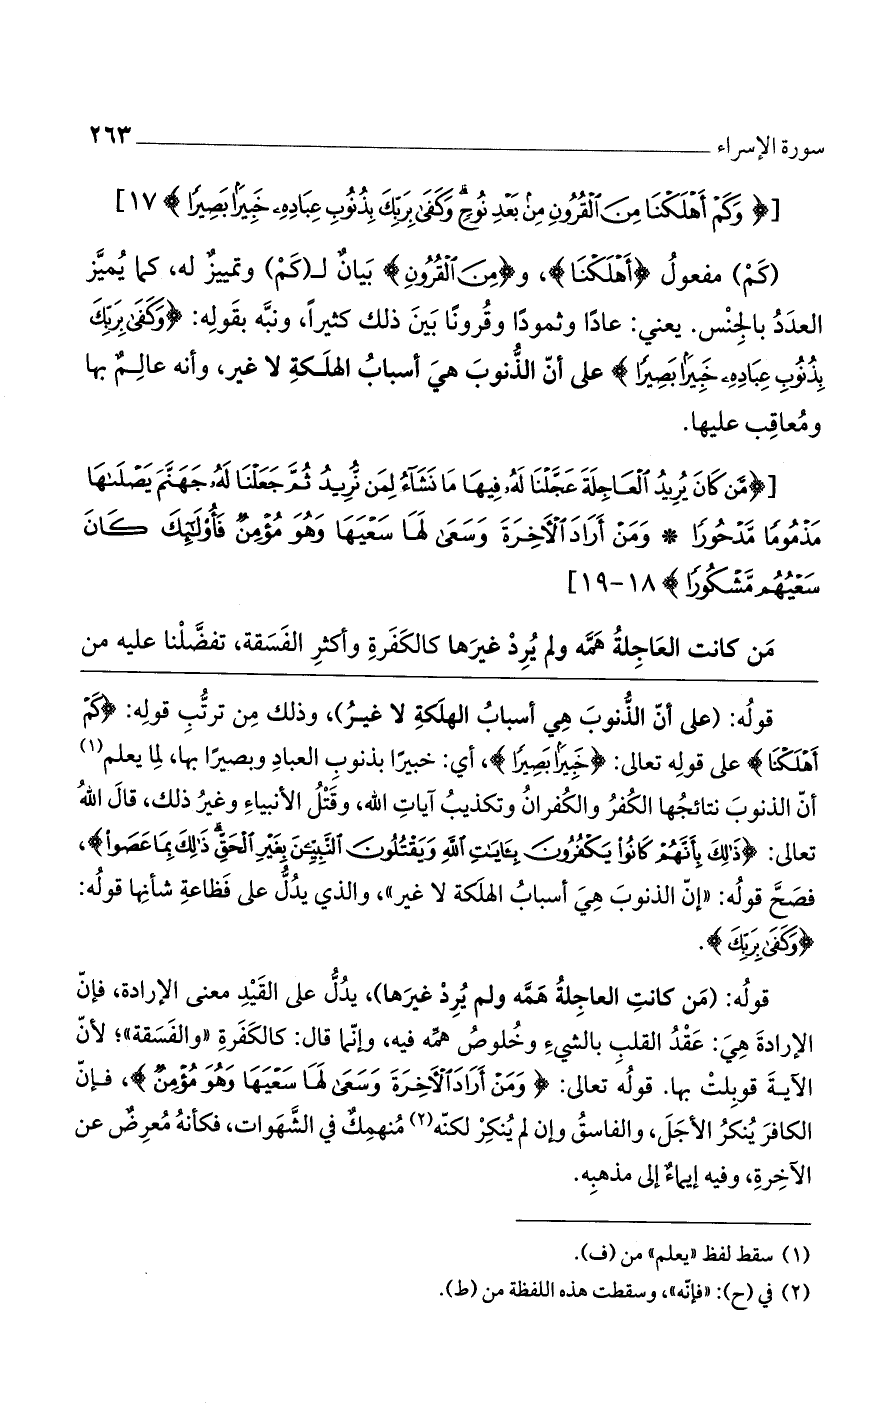 سورة الإسراء ٢٦٣
[﴿ وَكَمْ أَهْلَكْنَا مِنَ ٱلْقُرُونِ مِنۢ بَعْدِ نُوحٍ ۗ وَكَفَىٰ بِرَبِّكَ بِذُنُوبِ عِبَادِهِۦ خَبِيرًۢا بَصِيرًا ﴾ ١٧]
(كَمْ) مفعولُ ﴿أَهْلَكْنَا﴾، و﴿مِنَ ٱلْقُرُونِ﴾ بَيانٌ لـ(كَمْ) وتمييزٌ له، كما يُميَّز
العدَدُ بالجِنْس. يعني: عادًا وثمودًا وقُرونًا بَينَ ذلك كثيراً، ونبَّه بقَولِه: ﴿وَكَفَىٰ بِرَبِّكَ
بِذُنُوبِ عِبَادِهِۦ خَبِيرًۢا بَصِيرًا ﴾ على أنّ الذُّنوبَ هيَ أسبابُ الهلَكةِ لا غير، وأنه عالِمٌ بها
ومُعاقِب عليها.
[﴿مَّن كَانَ يُرِيدُ ٱلْعَاجِلَةَ عَجَّلْنَا لَهُۥ فِيهَا مَا نَشَآءُ لِمَن نُّرِيدُ ثُمَّ جَعَلْنَا لَهُۥ جَهَنَّمَ يَصْلَىٰهَا
مَذْمُومًا مَّدْحُورًا * وَمَنْ أَرَادَ ٱلْأَخِرَةَ وَسَعَىٰ لَهَا سَعْيَهَا وَهُوَ مُؤْمِنٌ فَأُو۟لَٰٓئِكَ كَانَ
سَعْيُهُم مَّشْكُورًا ﴾ ١٨-١٩]
مَن كانت العَاجِلةُ هَمَّه ولم يُرِدْ غيرَها كالكَفَرةِ وأكثرِ الفَسَقة، تفضَّلْنا عليه من
قولُه: (على أنّ الذُّنوبَ هي أسبابُ الهلَكةِ لا غيرُ)، وذلك مِن ترتُّبِ قولِه: ﴿كَمْ
أَهْلَكْنَا ﴾ على قولِه تعالى: ﴿خَبِيرًۢا بَصِيرًا ﴾، أي: خبيرًا بذنوبِ العبادِ وبصيرًا بها، لِما يعلم(١)
أنّ الذنوبَ نتائجُها الكُفرُ والكُفرانُ وتكذيبُ آياتِ الله، وقَتْلُ الأنبياءِ وغيرُ ذلك، قالَ اللهُ
تعالى: ﴿ذَٰلِكَ بِأَنَّهُمْ كَانُوا۟ يَكْفُرُونَ بِـَٔايَٰتِ ٱللَّهِ وَيَقْتُلُونَ ٱلنَّبِيِّـۧنَ بِغَيْرِ ٱلْحَقِّ ۗ ذَٰلِكَ بِمَا عَصَوا۟﴾،
فصَحَّ قولُه: «إنّ الذنوبَ هيَ أسبابُ الهلَكة لا غير»، والذي يدُلُّ على فَظاعةِ شأنِها قولُه:
﴿وَكَفَىٰ بِرَبِّكَ ﴾.
قولُه: (مَن كانتِ العاجِلةُ هَمَّه ولم يُرِدْ غيرَها)، يدُلُّ على القَيْدِ معنى الإرادة، فإنّ
الإرادةَ هيَ: عَقْدُ القلبِ بالشيءِ وخُلوصُ همِّه فيه، وإنّما قال: كالكَفَرةِ «والفَسَقة»؛ لأنّ
الآيةَ قوبِلتْ بها. قولُه تعالى: ﴿ وَمَنْ أَرَادَ ٱلْأَخِرَةَ وَسَعَىٰ لَهَا سَعْيَهَا وَهُوَ مُؤْمِنٌ ﴾، فإنّ
الكافرَ يُنكرُ الأجَلَ، والفاسقُ وإن لم يُنكِرْ لكنّه(٢) مُنهمِكٌ في الشَّهَوات، فكأنهُ مُعرِضٌ عن
الآخِرةِ، وفيه إيماءٌ إلى مذهبِه.
(١) سقط لفظ «يعلم» من (ف).
(٢) في (ح): «فإنّه»، وسقطت هذه اللفظة من (ط).